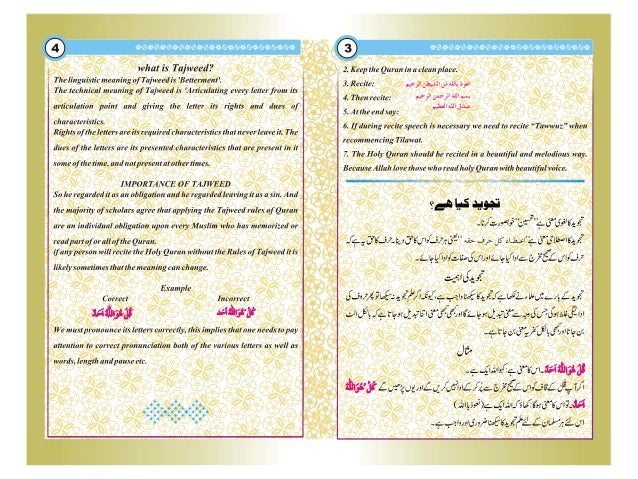 4
what is Tajweed?
The linguistic meaning of Tajweed is 'Betterment'.
The technical meaning of Tajweed is 'Articulating every letter from its
articulation point and giving the letter its rights and dues of
characteristics.
Rights of the letters are its required characteristics that never leave it. The
dues of the letters are its presented characteristics that are present in it
some of the time, and not present at other times.
IMPORTANCE OF TAJWEED
So he regarded it as an obligation and he regarded leaving it as a sin. And
the majority of scholars agree that applying the Tajweed rules of Quran
are an individual obligation upon every Muslim who has memorized or
read part of or all of the Quran.
if any person will recite the Holy Quran without the Rules of Tajweed it is
likely sometimes that the meaning can change.
Example
Correct Incorrect
قُلْ هُوَ اللّٰهُ اَحَدٌ كُلْ هُوَ اللّٰهُ اَحَدٌ
We must pronounce its letters correctly, this implies that one needs to pay
attention to correct pronunciation both of the various letters as well as
words, length and pause etc.
3
2. Keep the Quran in a clean place.
3. Recite: اعوذ بالله من الشيطن الرجيم
4. Then recite: بسم الله الرحمن الرحيم
5. At the end say: صدق الله العظيم
6. If during recite speech is necessary we need to recite “Tawwuz” when
recommencing Tilawat.
7. The Holy Quran should be recited in a beautiful and melodious way.
Because Allah love those who read holy Quran with beautiful voice.
تجوید کیا ھے؟
تجوید کا لغوی معنی ہے ’’تحسین‘‘ خوبصورت کرنا۔
تجوید کا اصطلاحی معنی ہے ’’اعطاء کل حرف حقہ‘‘ یعنی ہر حرف کو اس کا حق دینا۔ حرف کا حق یہ ہے کہ
حرف کو اس کے صحیح مخرج سے ادا کیا جائے اور اس کی صفات کو ادا کیا جائے۔
تجوید کی اہمیت
مثال
قُلْ هُوَ اللّٰهُ اَحَدٌ۔ اس کا معنی ہے: کہو اللہ ایک ہے۔
اس لئے ہر مسلمان کے لئے علم تجوید کا سیکھنا ضروری اور واجب ہے۔